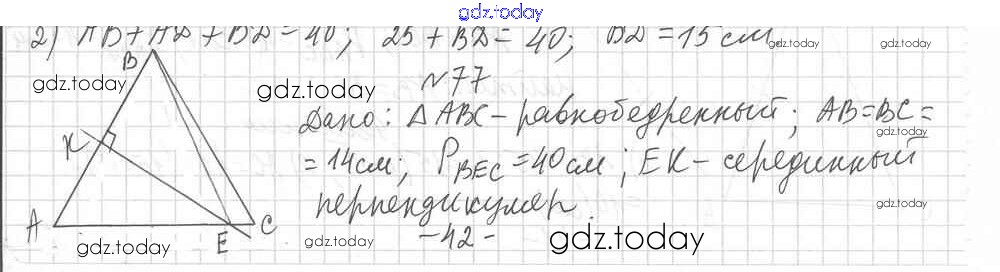 gdz.today
2) AB+AD+BD=40; 25+BD=40; BD=15см.
gdz.today
B
gdz.today
gdz.today
№77
Дано: ΔABC - равнобедренный; AB=BC=
gdz.today
K
=14см; P_BEC=40см; EK - серединный
перпендикуляр.
gdz.today
A
E
C
-42-
gdz.today
gdz.today
gdz.today